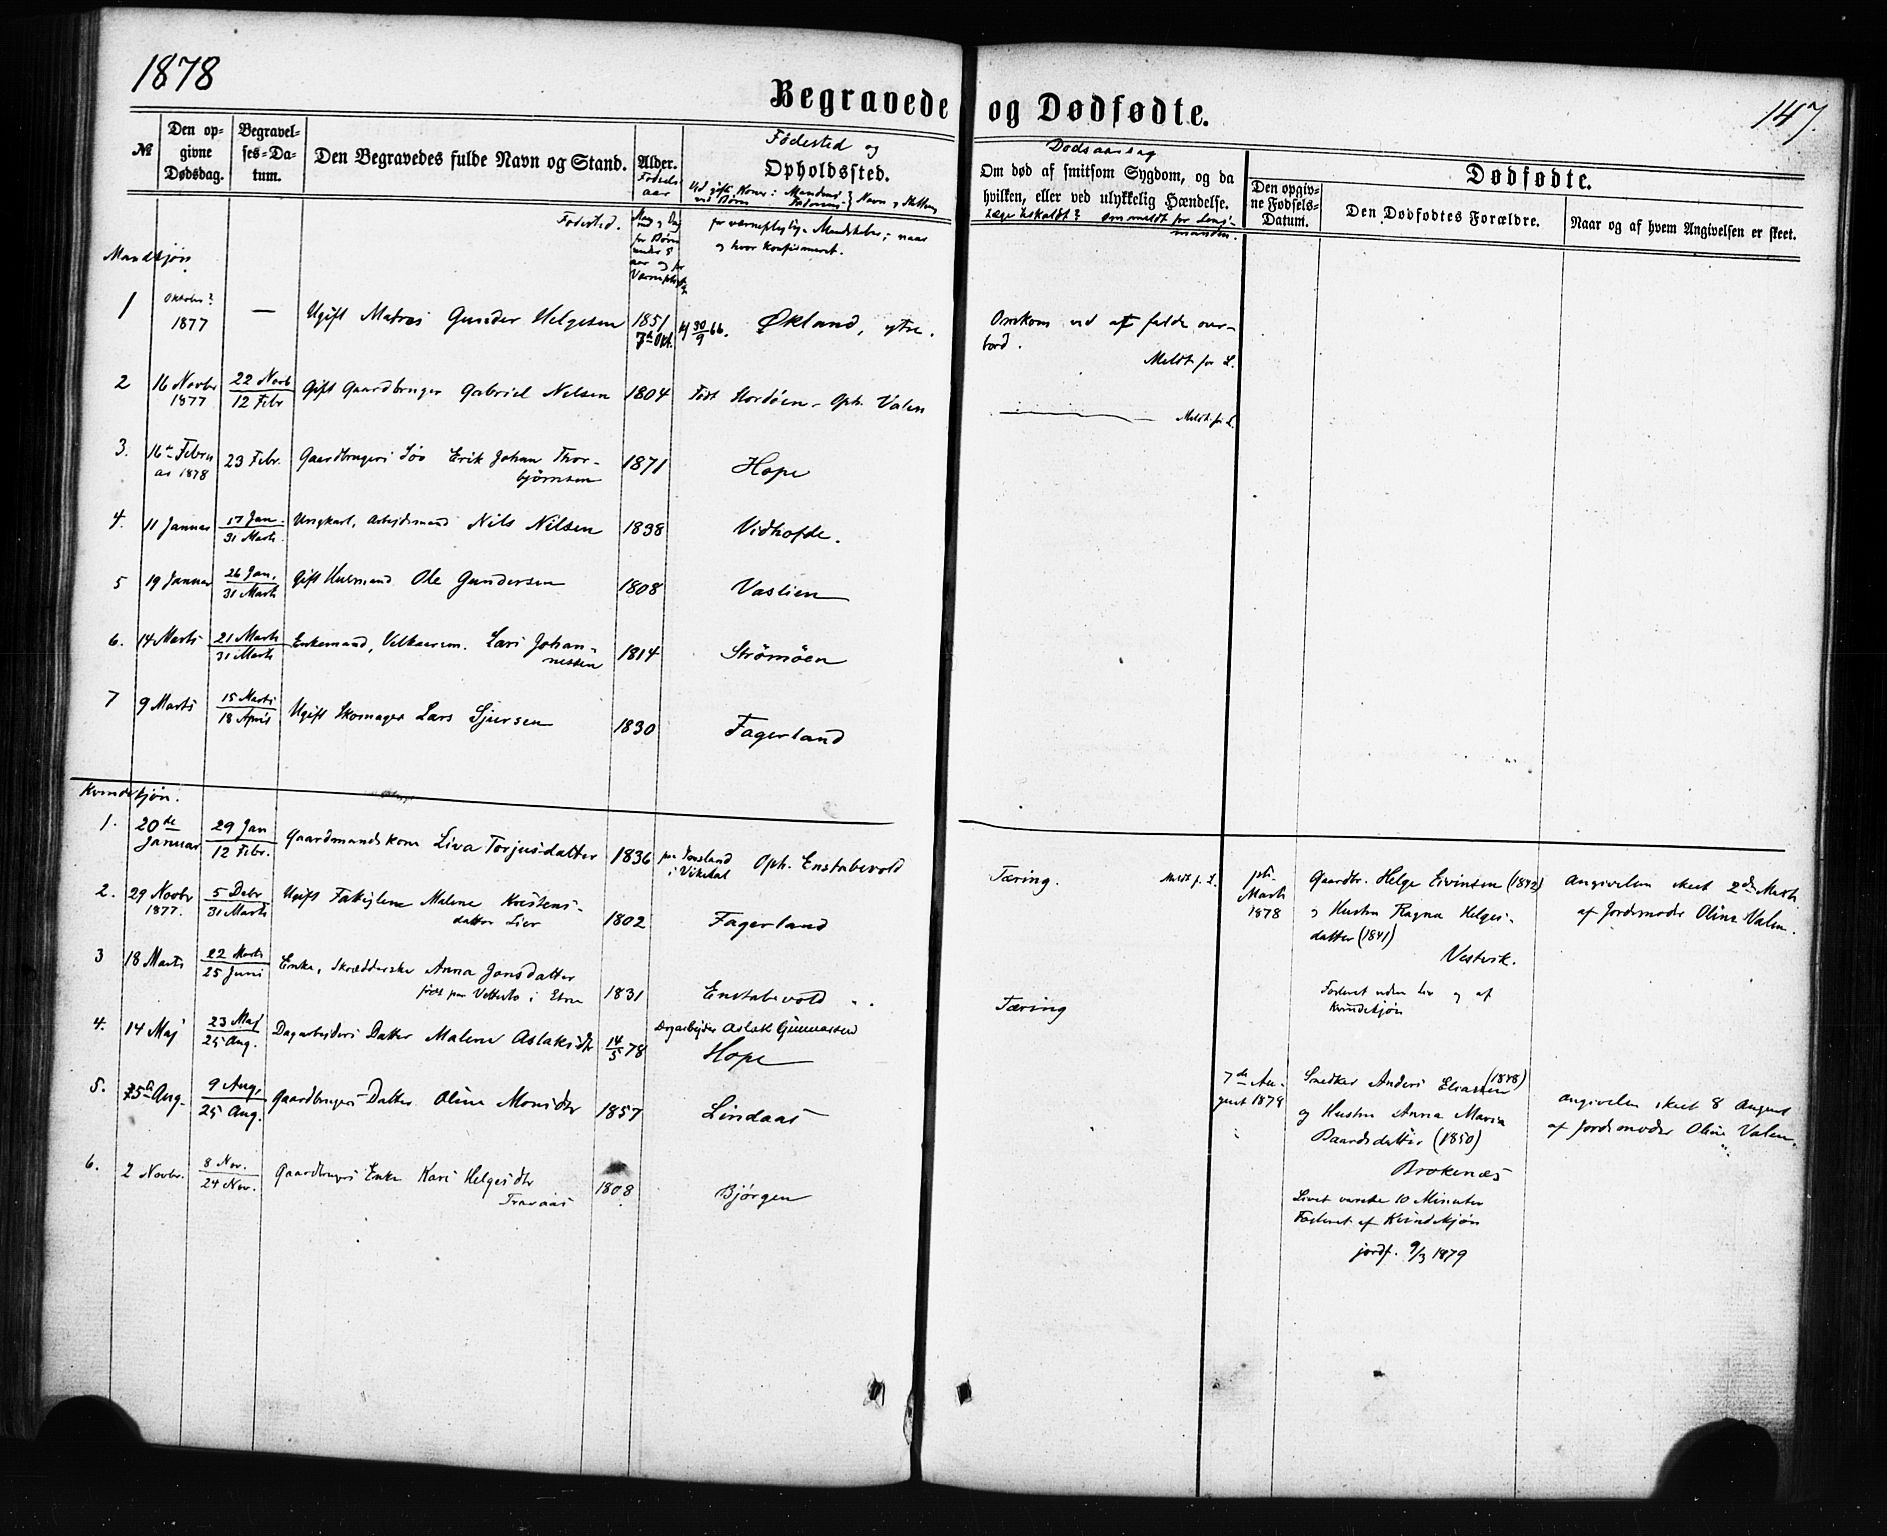 1878
Begravede og Dødfødte.
147.
№
Den opgivne Dødsdag.
Begravelses-Datum.
Den Begravedes fulde Navn og Stand.
Alder.
Fødselsaar
Fødested og
Opholdssted.
Dødsaarsag
Om død af smitsom Sygdom, og da
hvilken, eller ved ulykkelig Hændelse.
Dødfødte.
Den opgivne Fødsels-Datum.
Den Dødfødtes Forældre.
Naar og af hvem Angivelsen er skeet.
Fødested.
og hvor konfirmeret.
Mandkjøn
1 Oktober? 1877 — Ugift Matros Gunder Helgesen 1851 7de Okt. 30/9 66. Økland, ytre. Omkom ved at falde overbord. Meldt for L.
2 16 Novbr 1877 22 Novb 12 Febr Gift Gaardbruger Gabriel Nelsen 1804 Født Hordøen - Oph. Valen Meldt for L.
3. 16de Februar 1878 23 Febr. Gaardbrugers Søn Erik Johan Thorbjørnsen 1871 Hope
4. 11 Januar 17 Jan. 31 Marts Ungkarl, Arbejdsmand Nils Nilsen 1838 Vidhofde.
5 19 Januar 26 Jan. 31 Marts Gift Husmand Ole Gundersen 1808 Vaslien
6. 14 Marts 21 Marts 31 Marts Enkemand, Lars Johannessen 1814 Strömöen
7 9 Marts 15 Marts 18 April Ugift Skomager Lars Sjursen 1830 Fagerland
Kvindekjøn.
1. 20de Januar 29 Jan 12 Febr. Gaardmandskone Liva Torjusdatter 1836 Oph. Enstabevold Tæring. Meldt f. L.
2. 29 Novbr 1877. 5 Debr 31 Marts Ugift Malene datter Lier 1802 Fagerland
3 18 Marts 22 Marts 25 Juni Enke, Skrædderske Anna Jonsdatter
født paa i Etne 1831 Enstabevold Tæring
4. 14 Maj 23 Maj 25 Aug. Dagarbejders Datter Malene Aslaksdtr 14/5 78 Dagarbejder Aslak Gunnarsen
Hope
5. Aug. 9 Aug. 25 Aug. Gaardbrugers Datter Oline Monsdtr 1857 Lindaas
6. 2 Novbr. 8 Nov. 24 Nov. Gaardbrugers Enke Kari Helgesdtr
Travaas 1808 Bjørgen
Marts
1878
Gaardbr. Helge Eivinsen (1842)
og Hustru Ragna Helgesdatter (1841)
Vestvik.
Fosteret uden Liv og af
Kvindekjøn
Angivelsen skeet 2den Marts
af Jordmoder Oline Valen.
7de August 1878
Snedker Anders Eliassen (1848)
og Hustru Anna Maria
Baardsdatter (1850)
Brokenæs
Livet varede 10 Minuter
Fosteret af Kvindekjøn
jordf. 9/3 1879
Angivelsen skeet 8 August
af Jordmoder Oline Valen.